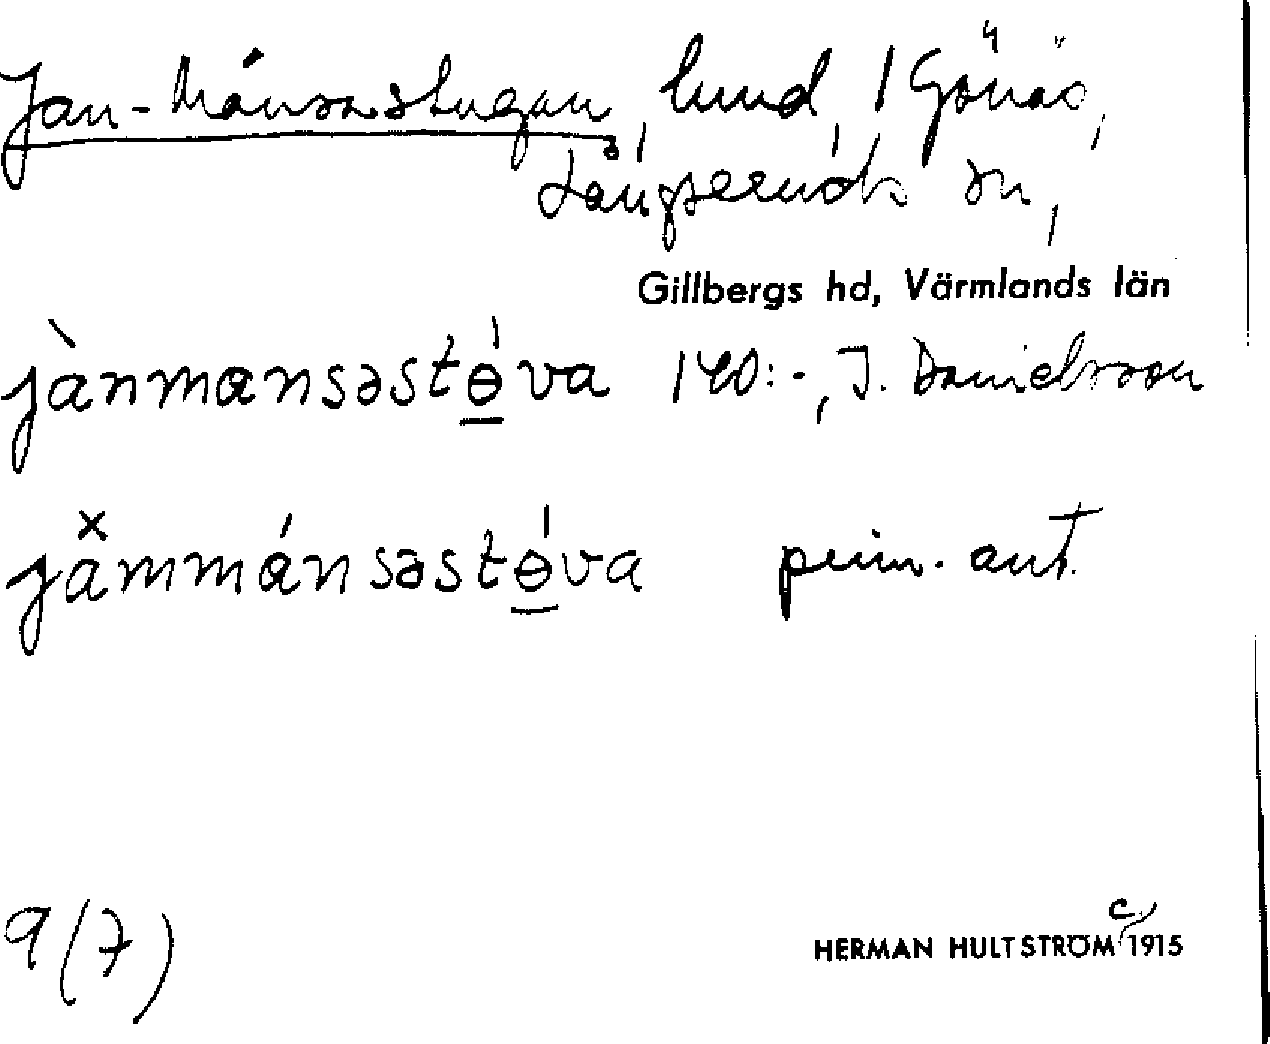 Jan-Månsastugan, lund, 1 Gönäs,
Långseruds sn,
Gillbergs hd, Värmlands län
jànmansəstɵ̱́va 140:-, J. Danielsson
jämmánsəstɵ̱́va prim. ant.
9(7)
HERMAN HULTSTRÖM c 1915